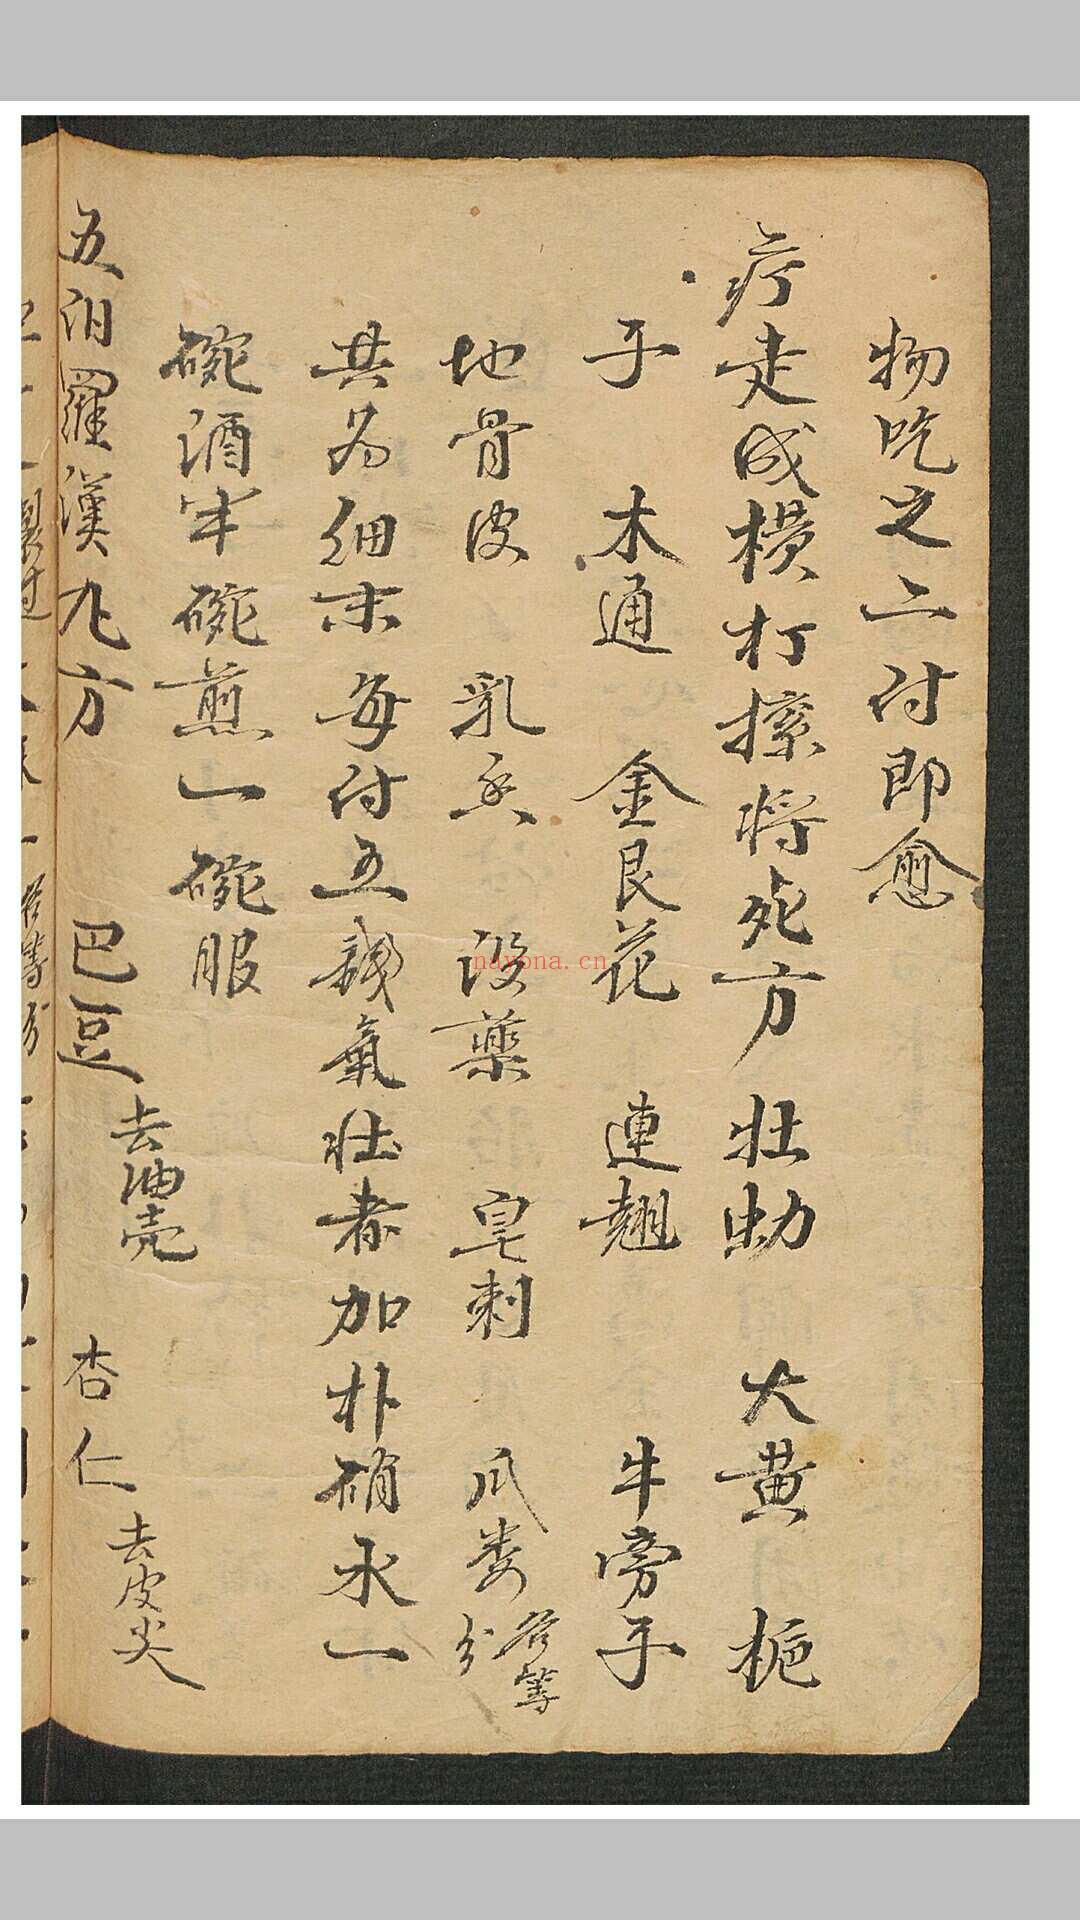 物吃之二付即愈
疔走成横打擦将死方 牡蛎 大黄 栀
子 木通 金艮花 連翹 牛旁子
地骨皮 乳香 没藥 皂刺 瓜娄 各等分
共為細末每付五錢氣壮者加朴硝水一
碗酒半碗煎一碗服
五汨羅漢九方 巴豆 去油壳 杏仁 去皮尖
nayona.cn